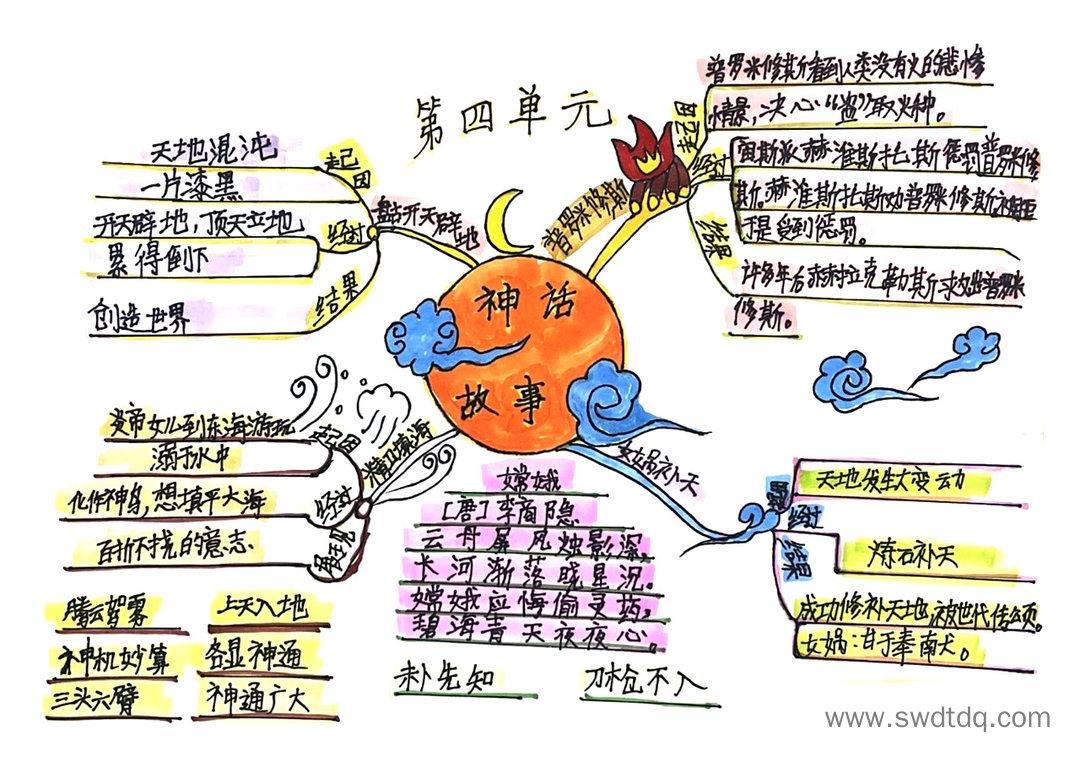 第四单元
神话
故事
盘古开天辟地
起因
天地混沌
一片漆黑
经过
开天辟地，顶天立地
累得倒下
结果
创造世界
普罗米修斯
起因
普罗米修斯看到人类没有火的悲惨
情景，决心“盗”取火种。
经过
宙斯派赫淮斯托斯惩罚普罗米修
斯，赫淮斯托斯劝普罗米修斯
于是受到惩罚。
结果
许多年后赫拉克勒斯救出普罗米
修斯。
精卫填海
起因
炎帝女儿到东海游玩
溺于水中
经过
化作神鸟，想填平大海
百折不挠的意志
女娲补天
经过
结果
天地发生大变动
炼石补天
成功修补天地，被世代传颂。
女娲：甘于奉献。
嫦娥
[唐]李商隐
云丹屏风烛影深，
长河渐落晓星沉。
嫦娥应悔偷灵药，
碧海青天夜夜心。
腾云驾雾
上天入地
神机妙算
各显神通
三头六臂
神通广大
未卜先知
刀枪不入
www.swdtdq.com